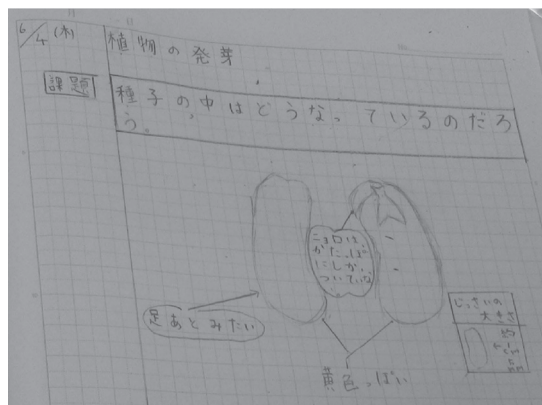 6/4(木)
植物の発芽
課題
種子の中はどうなっているのだろ
う。
ニョロは、
かたっぽ
にしか、
ついていな
足あとみたい
黄色っぽい
じっさいの
大きさ
約